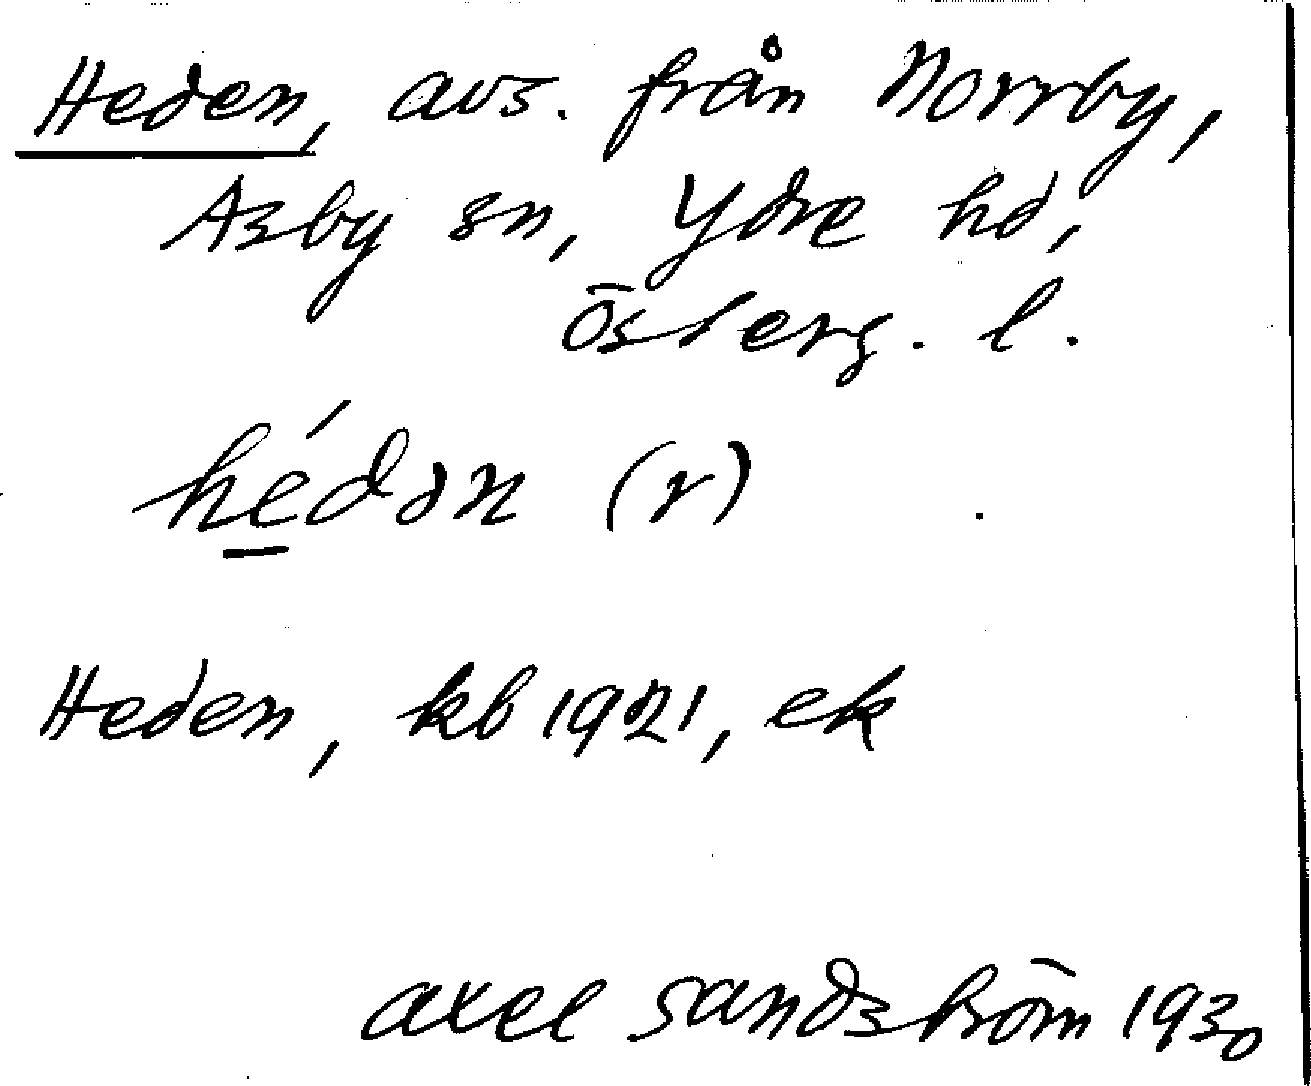 Heden, avs. från Norrby,
Asby sn, Ydre hd,
Österg. l.
hédən (r)
Heden, kb 1921, ek
Axel Sandström 1930